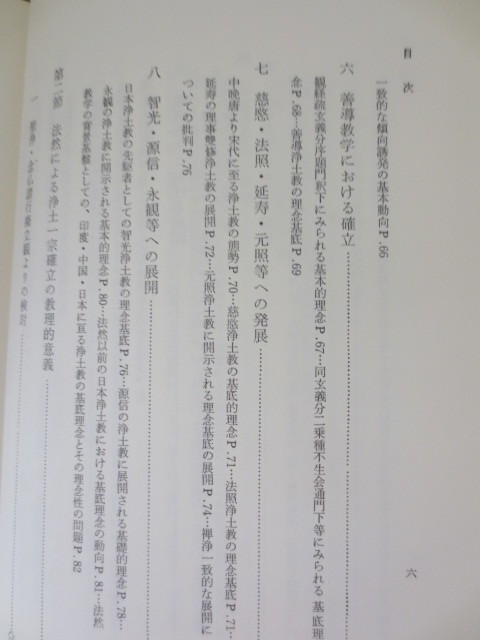 目次
一致的な傾向誘発の基本動向P.66
六 善導教学における確立
観経疏玄義分序題門釈下にみられる基本的理念P.67…同玄義分二乗種不生会通門下等にみられる基底理
念P.68…善導浄土教の理念基底P.69
七 慈愍・法照・延寿・元照等への発展
中晩唐より宋代に至る浄土教の態勢P.70…慈愍浄土教の基底的理念P.71…法照浄土教の理念基底P.71…
延寿の理事雙修浄土教の展開P.72…元照浄土教に開示される理念基底の展開P.74…禅浄一致的な展開に
ついての批判P.76
八 智光・源信・永観等への展開
日本浄土教の先駆者としての智光浄土教の理念基底P.76…源信の浄土教に展開される基礎的理念P.78…
永観の浄土教に開示される基本的理念P.80…法然以前の日本浄土教における基底理念の動向P.81…法然
教学の背景基盤としての、印度・中国・日本に亘る浄土教の基底理念とその理念性の問題P.82
第二節 法然による浄土一宗確立の教理的意義
一
六